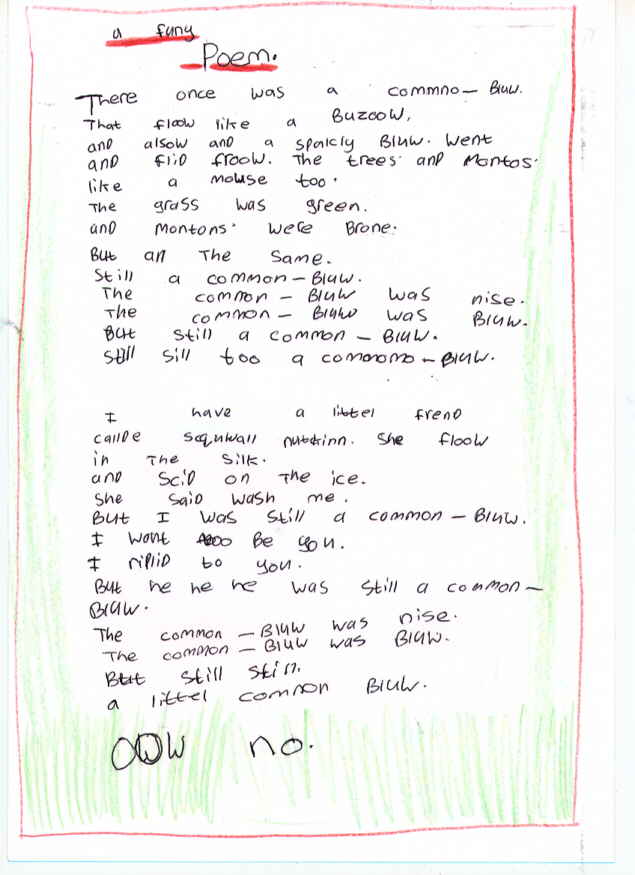 a funy
Poem.
There once was a commno - Bluw.
That floow like a Buzoow,
and alsow and a spalcly Bluw. went
and flid froow. The trees and Montos.
like a mouse too.
The grass was green.
and montons. were Brone.
But all The Same.
Still a common - Bluw.
The common - Bluw was nise.
The common - Bluw was Bluw.
But still a common - Bluw.
Still sill too a comonomo - Bluw.
I have a littel frend
callde squwall nutkinn. She floow
in The Silk.
and Sci'd on The ice.
She Said wash me.
But I was Still a common - Bluw.
I wont Be you.
I riplid to you.
But he he he was still a common -
Bluw.
The common - Bluw was nise.
The common - Bluw was Bluw.
But still still.
a littel common Bluw.
OOW no.